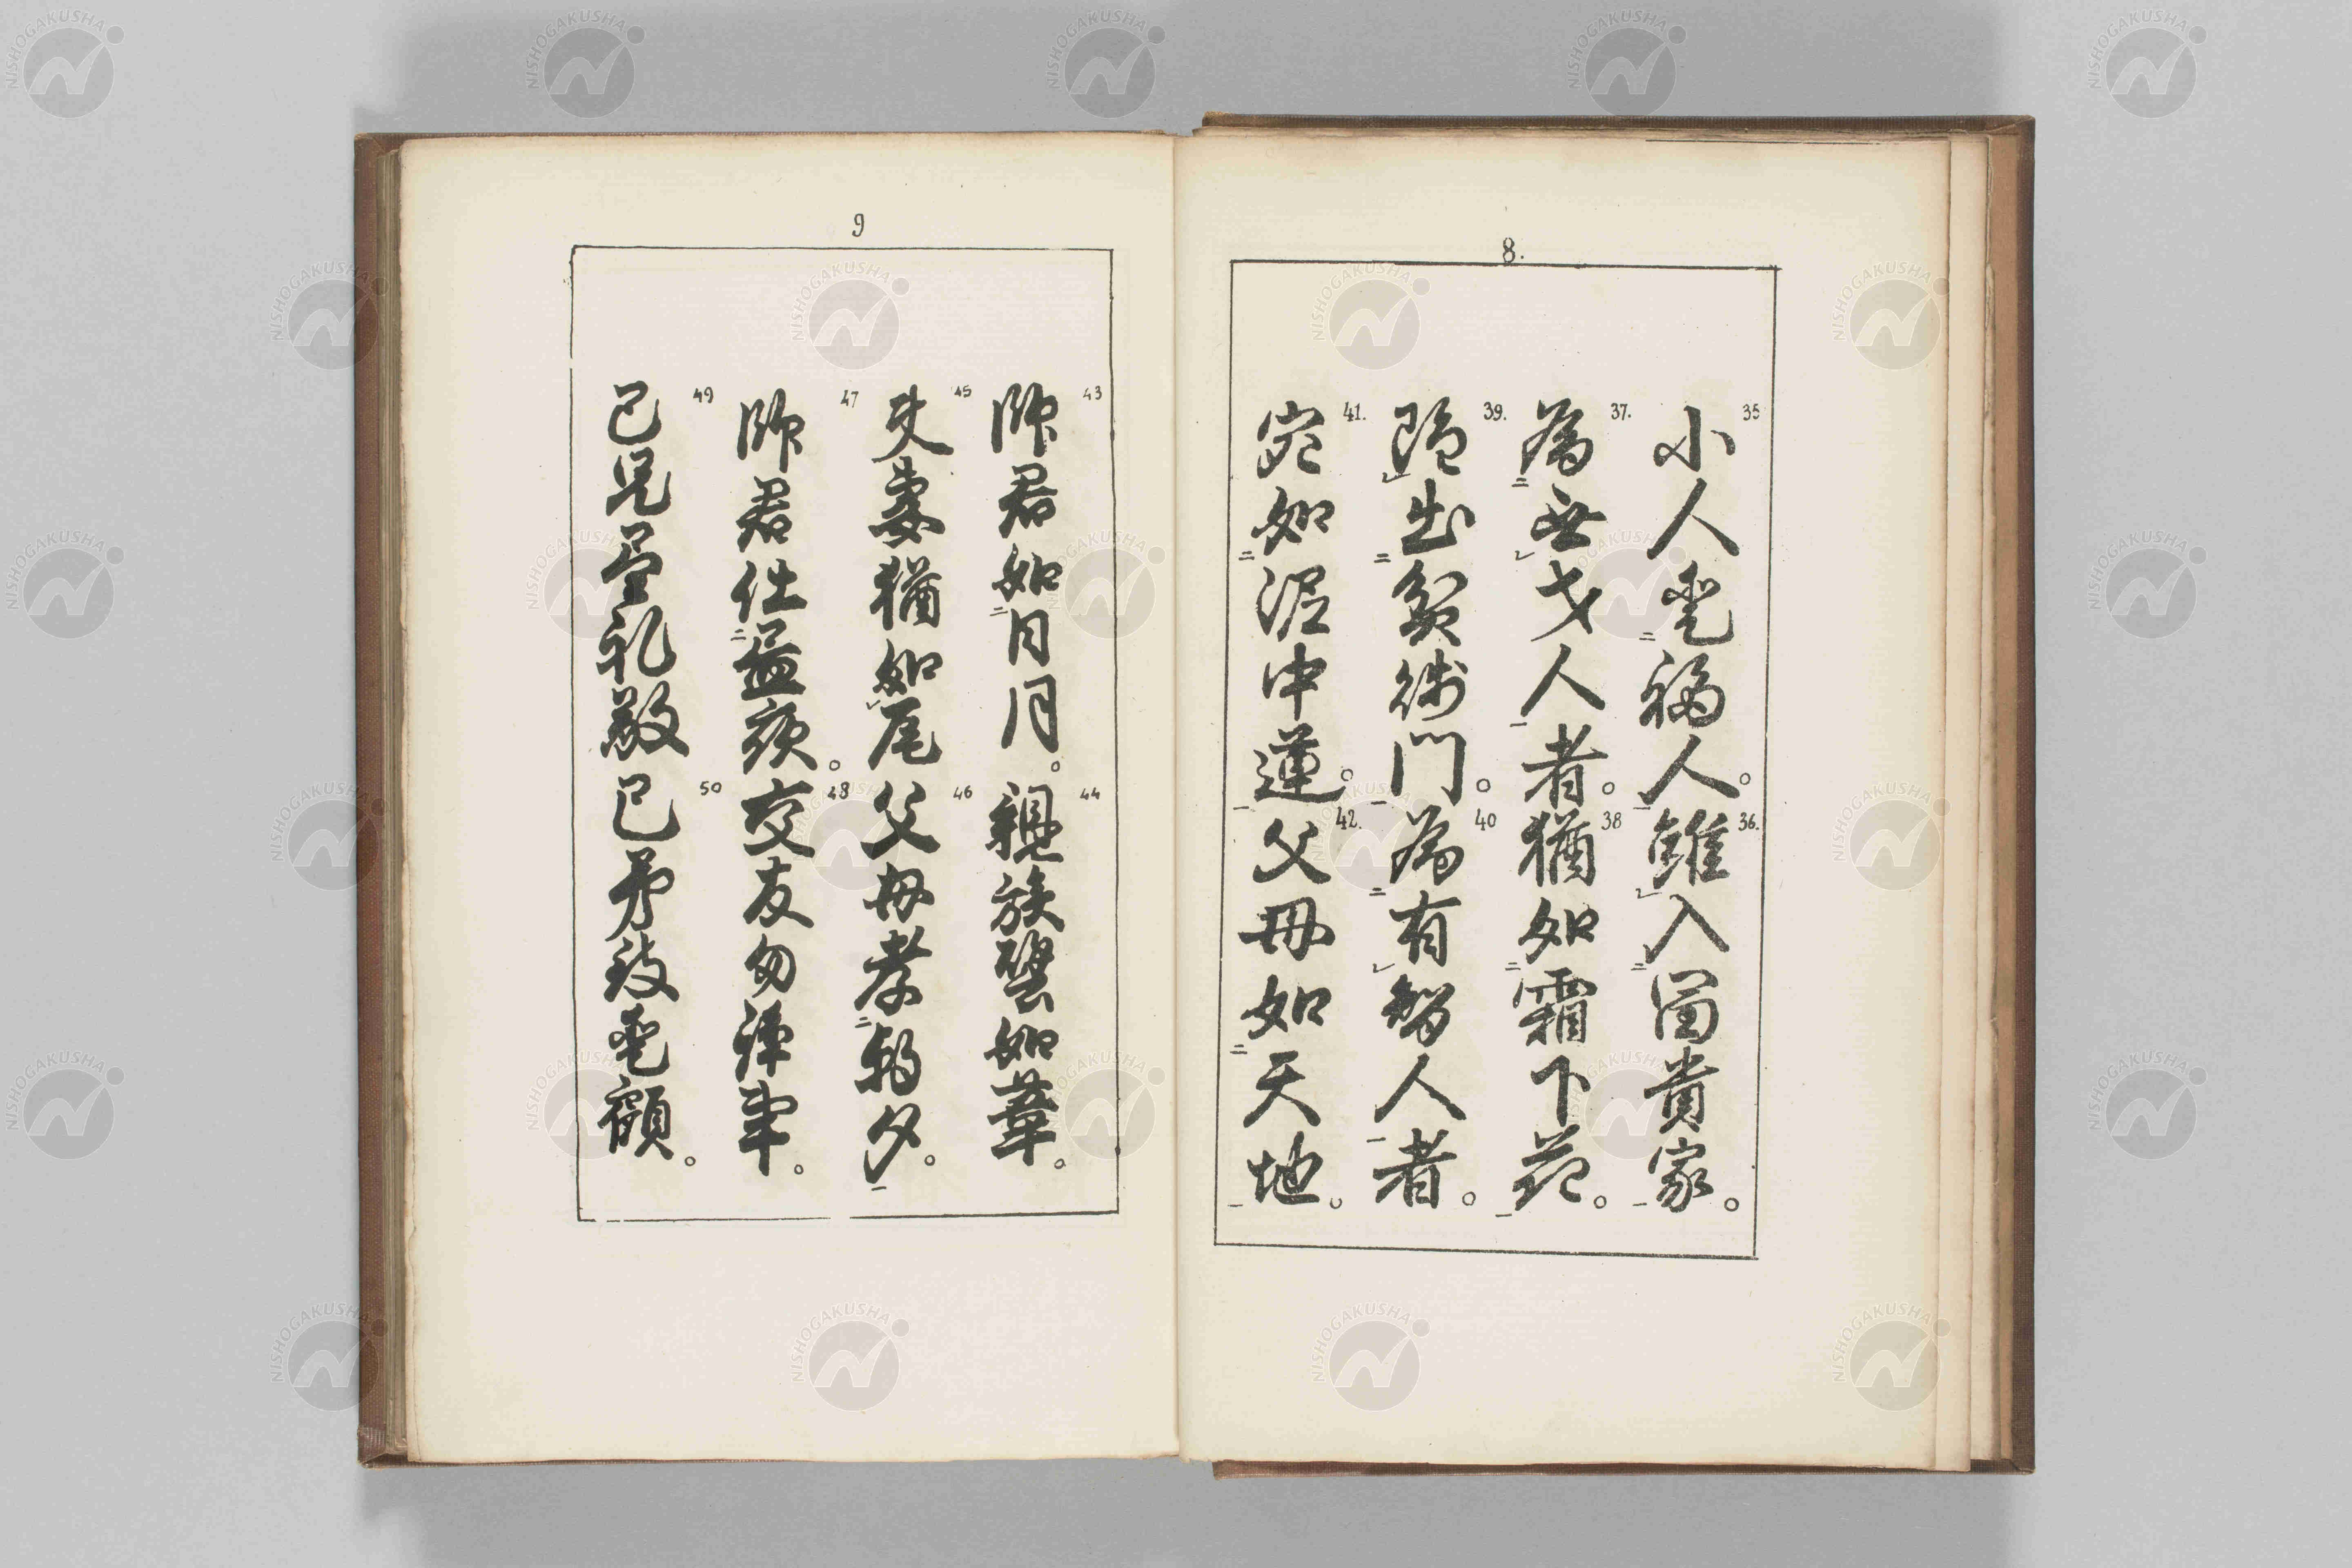 8.
35 小人愛福人。36. 雖入冨貴家。
37. 為无才人者。38 猶如霜下花。
39. 雖出貧賤門。40 為有智人者。
41. 宛如泥中蓮。42. 父母如天地。
9
43 師君如日月。44 親族譬如葦。
45 夫妻猶如尾 46 父母孝朝夕。
47 師君仕晝夜。48 交友勿諍事。
49 己兄尽礼敬 50 己弟致愛顧。
NISHOGAKUSHA